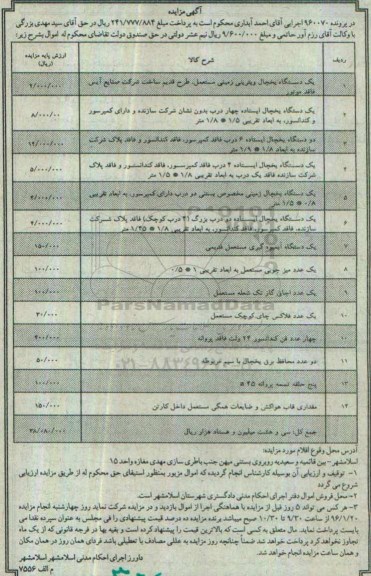 آگهی مزایده
در پرونده ۹۶۰۰۷۰ اجرایی آقای احمد آبداری محکوم است به پرداخت مبلغ ۲۴۱/۷۷۷/۸۸۴ ریال در حق آقای سید مهدی بزرگی
با وکالت آقای رزم آور حاتمی و مبلغ ۹/۶۰۰/۰۰۰ ریال نیم عشر دولتی در حق صندوق دولت تقاضای محکوم له اموال بشرح زیر:
ردیف شرح کالا ارزش پایه مزایده (ریال)
۱ یک دستگاه یخچال ویترینی زمینی مستعمل، طرح قدیم ساخت شرکت صنایع آیس فاقد موتور
۲ یک دستگاه یخچال ایستاده چهار درب بدون نشان شرکت سازنده و دارای کمپرسور و کندانسور، به ابعاد تقریبی ۱/۵ * ۱/۸ متر ۸/۰۰۰/۰۰۰
۳ دو دستگاه یخچال ایستاده ۶ درب فاقد کمپرسور، فاقد کندانسور و فاقد پلاک شرکت سازنده به ابعاد ۱/۸ * ۱/۹ متر ۱۲/۰۰۰/۰۰۰
۴ یک دستگاه یخچال ایستاده ۴ درب فاقد کمپرسور، فاقد کندانسور و فاقد پلاک شرکت سازنده فاقد یک درب به ابعاد تقریبی ۱/۸ * ۱/۵ متر ۵/۰۰۰/۰۰۰
۵ یک دستگاه یخچال زمینی مخصوص بستنی دو درب دارای کمپرسور، به ابعاد تقریبی ۰/۸ * ۱/۵ متر
۶ یک دستگاه یخچال ایستاده دو درب بزرگ (۴ درب کوچک) فاقد پلاک شرکت سازنده، فاقد کمپرسور، فاقد کندانسور، به ابعاد تقریبی ۱/۸ * ۱/۴۵ متر ۴/۰۰۰/۰۰۰
۷ یک دستگاه آبمیوه گیری مستعمل قدیمی ۱۵۰/۰۰۰
۸ یک عدد میز چوبی مستعمل به ابعاد تقریبی ۱ * ۰/۵ ۱۰۰/۰۰۰
۹ یک عدد اجاق گاز تک شعله مستعمل ۱۰۰/۰۰۰
۱۰ یک عدد فلاکس چای کوچک مستعمل ۳۰/۰۰۰
۱۱ چهار عدد فن کندانسور ۲۲ ولت فاقد پروانه ۴۰۰/۰۰۰
۱۲ دو عدد محافظ برق یخچال با سیم مربوطه ۵۰/۰۰۰
۱۳ پنج حلقه تسمه پروانه ۴۵ a ۱۰۰/۰۰۰
۱۴ مقداری قاب هواکش و ضایعات همگی مستعمل داخل کارتن ۱۵۰/۰۰۰
جمع کل: سی و هشت میلیون و هشتاد هزار ریال ۳۸/۰۸۰/۰۰۰
آدرس محل وقوع اقلام مورد مزایده:
اسلامشهر - بین قائمیه و سعیدیه روبروی بستنی میهن جنب باطری سازی مهدی مغازه واحد ۱۵
۱- توقیف و ارزیابی آن بوسیله کارشناس انجام گردیده که اموال مزبور بمنظور استیفای حق محکوم له از طریق مزایده ارزیابی شروع می گردد
۲- محل فروش اموال دفتر اجرای احکام مدنی دادگستری شهرستان اسلامشهر است.
۳- هر کس می تواند ۵ روز قبل از مزایده با هماهنگی اجرا از اموال بازدید و در مزایده شرکت نماید روز چهارشنبه انجام مزایده
۹۶/۱/۲۰ از ساعت ۹/۳۰ تا ۱۰/۳۰ صبح میباشد برنده مزایده ده درصد قیمت پیشنهادی را فی مجلس به عنوان سپرده نقدا می
بایست پرداخت نماید. مال متعلق به کسی است که بالاترین قیمت را پیشنهاد کرده است و بقیه بها در فرجه قانونی که از یک ماه
تجاوز نخواهد کرد پرداخت خواهد شد ضمناً چنانچه روز مزایده به عللی مصادف با تعطیلی باشد فردای همان روز در همان مکان
و همان ساعت مزایده انجام خواهد شد.
دادورز اجرای احکام مدنی اسلامشهر اسلامشهر
م الف ۷۵۵۶
ParsNamadData